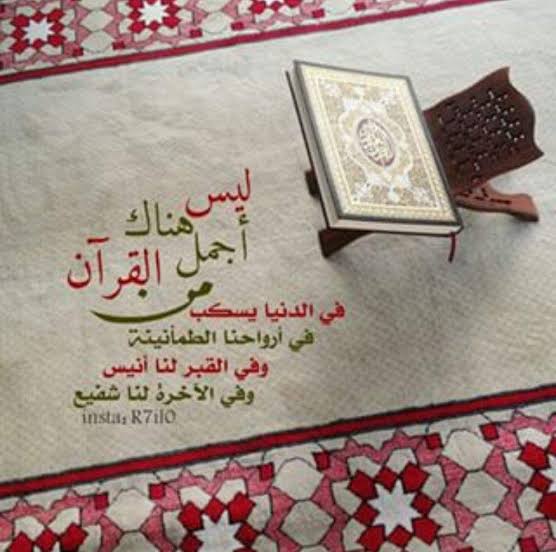 ليس
هناك
أجمل
من القرآن
في الدنيا يسكب
في أرواحنا الطمأنينة
وفي القبر لنا أنيس
وفي الآخرة لنا شفيع
insta: R7il0